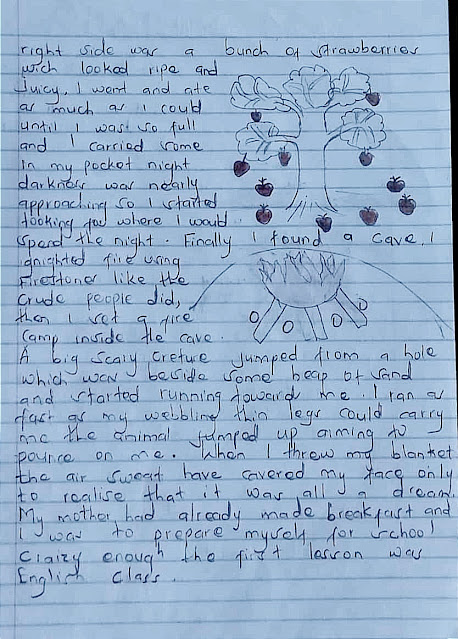 right side was a bunch of strawberries
wich looked ripe and
juicy. I went and ate
as much as I could
until I was so full
and I carried some
in my pocket night
darkness was nearly
approaching so I started
looking for where I would
spend the night. Finally I found a cave. I
ignighted fire using
Firestones like the
Crude people did,
then I set a fire
camp inside the cave.
A big scary creture jumped from a hole
which was beside some heap of sand
and started running toward me. I ran as
fast as my webbling thin legs could carry
me the animal jumped up aiming to
pounce on me. When I threw my blanket
the air sweat have covered my face only
to realise that it was all a dream.
My mother had already made breakfast and
I was to prepare myself for school
Craizy enough the first lesson was
English class.